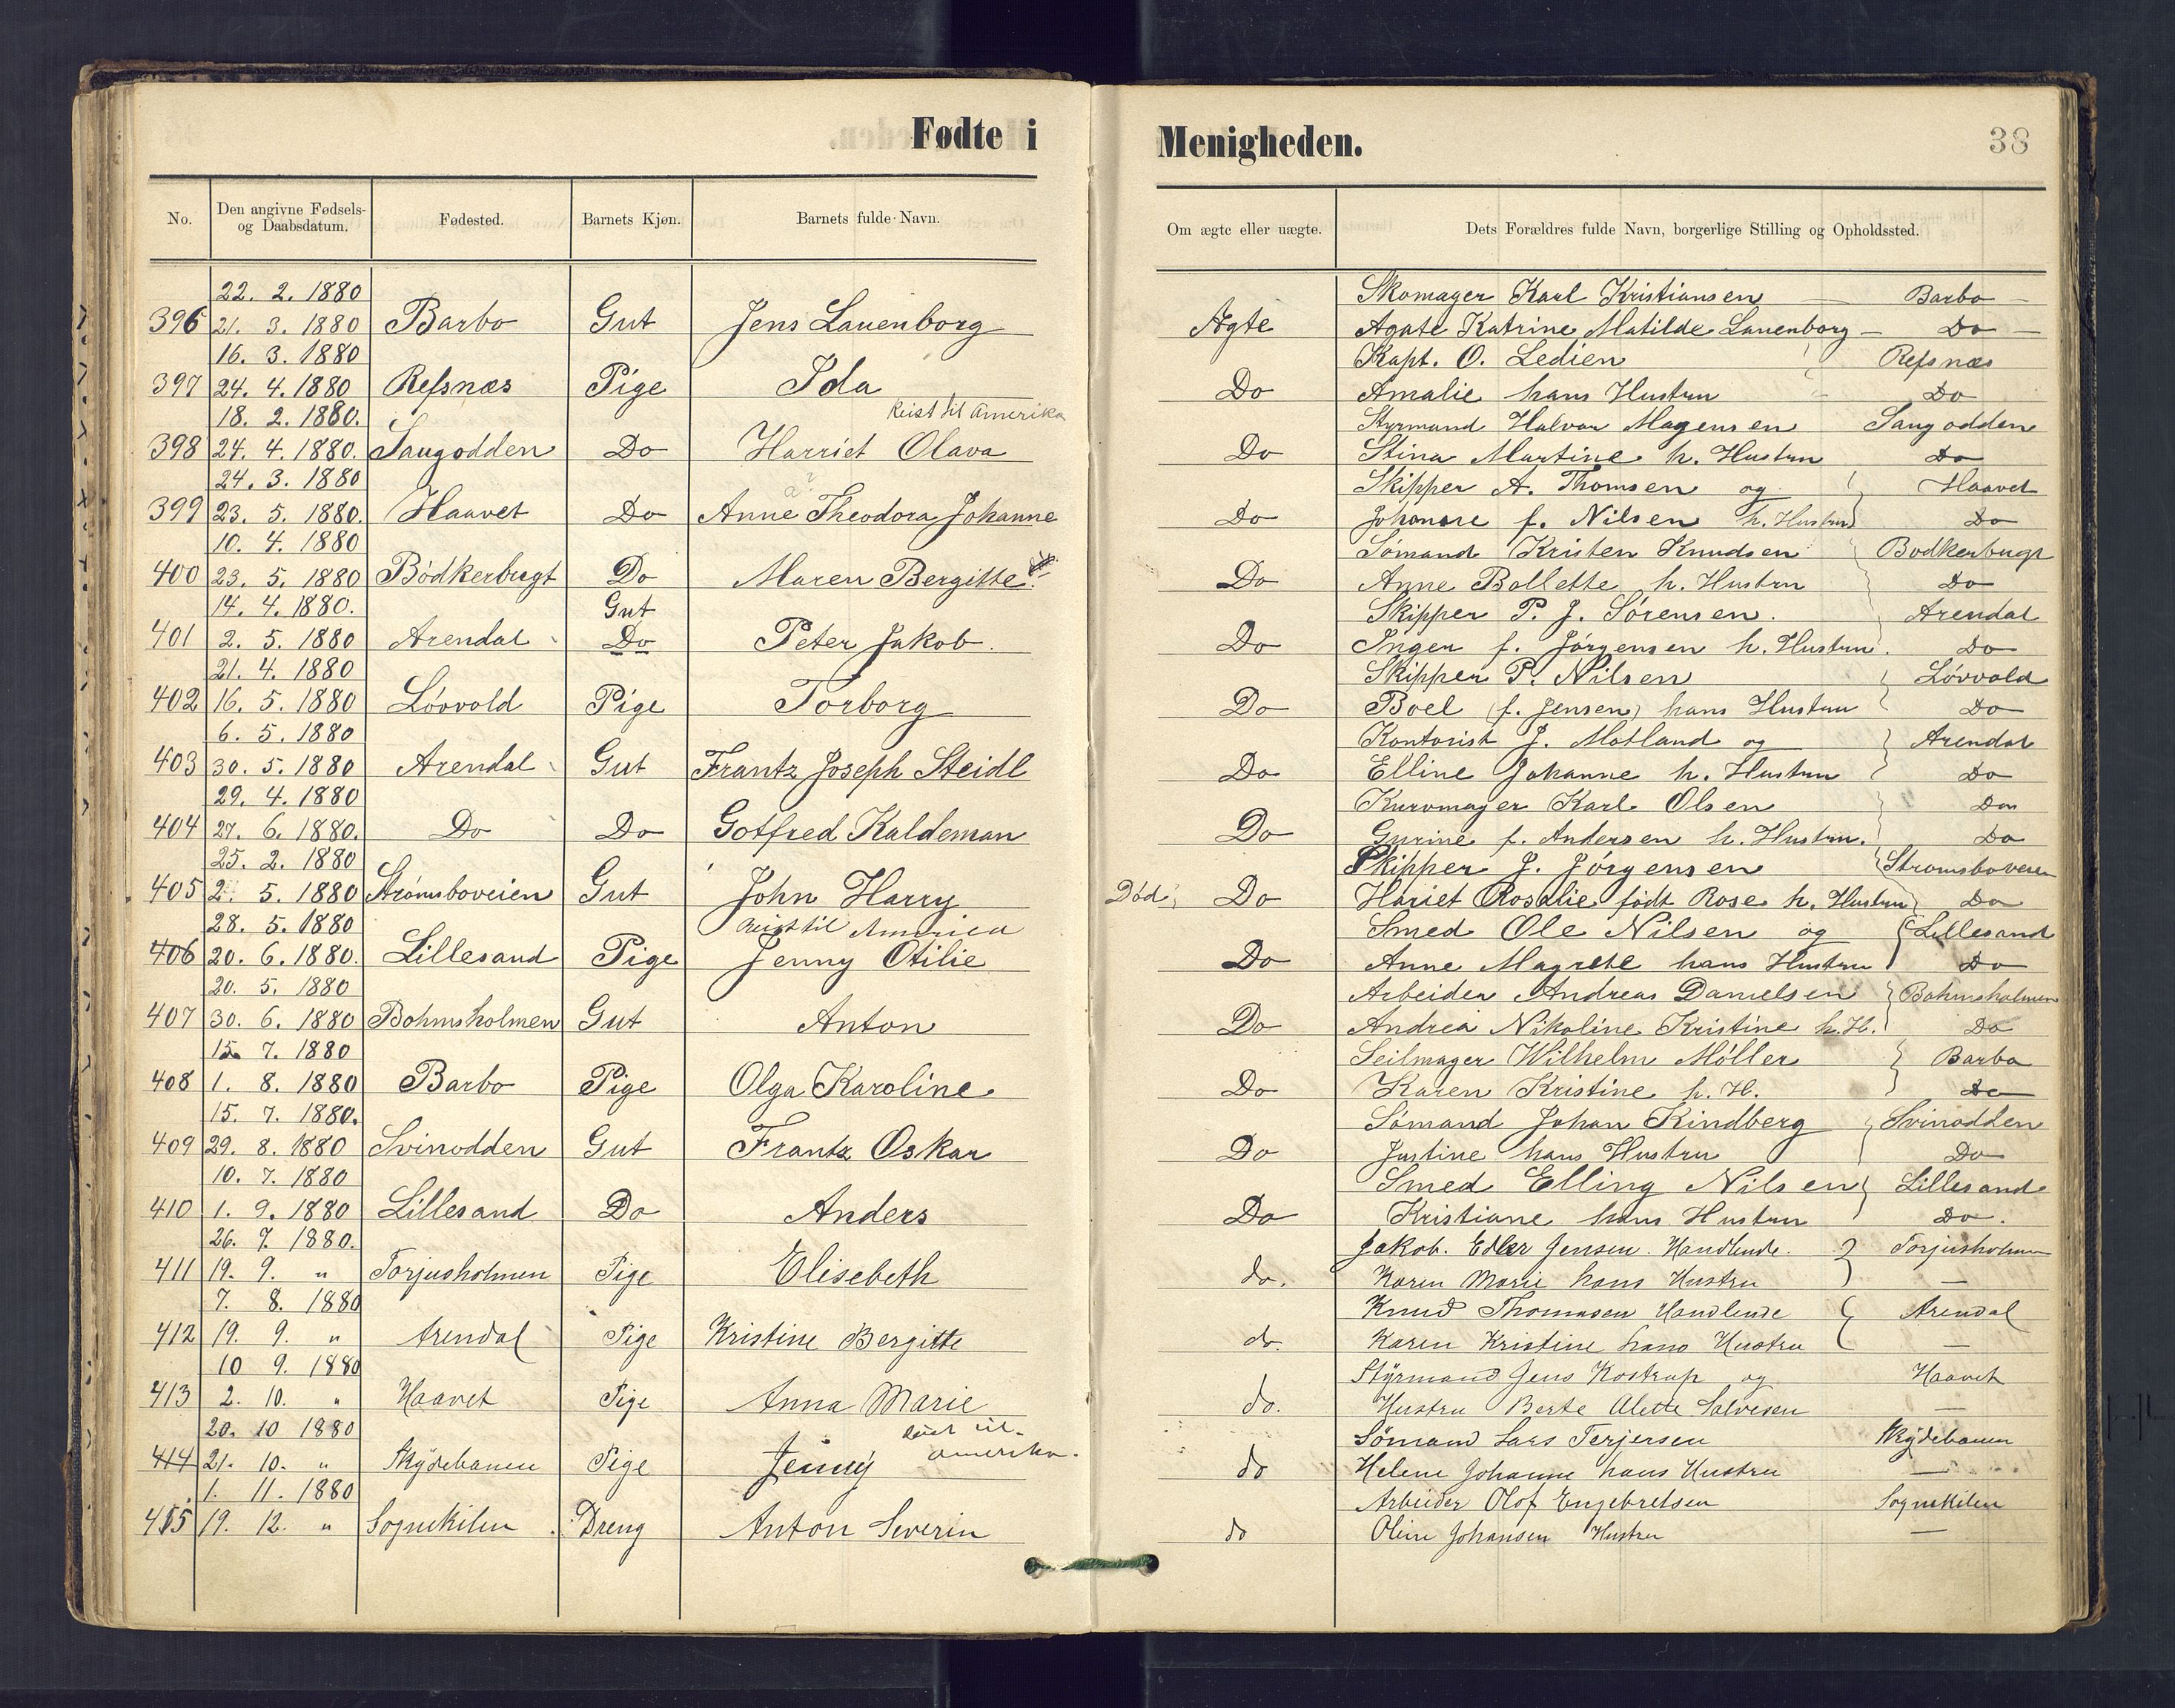 Fødte i
Menigheden.
38
No. Den angivne Fødsels- og Daabsdatum. Fødested. Barnets Kjøn. Barnets fulde Navn. Om ægte eller uægte. Dets Forældres fulde Navn, borgerlige Stilling og Opholdssted.
22. 2. 1880 Skomager Karl Kristiansen Barbo
396 21. 3. 1880 Barbo Gut Jens Lauenborg Ægte Agate Katrine Matilde Lauenborg Do
16. 3. 1880 Kapt. O. Ledien Refsnæs
397 24. 4. 1880 Refsnæs Pige Ida Do Amalie hans Hustru Do
18. 2. 1880. Reist til Amerika Styrmand Halvor Magensen Saugodden
398 24. 4. 1880. Saugodden Do Harriet Olava Do Stina Martine h. Hustru Do
24. 3. 1880 Skipper A. Thomsen og Haavet
399 23. 5. 1880. Haavet Do Anne Theodora Johanne Do Johanne f. Nilsen h. Hustru Do
10. 4. 1880 Sømand Kristen Knudsen Bødkerbugt
400 23. 5. 1880 Bødkerbugt Do Maren Bergitte Do Anne Bollette h. Hustru Do
14. 4. 1880. Gut Skipper P. J. Sørensen. Arendal
401 2. 5. 1880 Arendal Do Peter Jakob. Do Inger f. Jørgensen h. Hustru. Do
21. 4. 1880 Skipper P. Nilsen Løvvold
402 16. 5. 1880 Løvvold Pige Torborg Do Boel (f. Jensen) hans Hustru Do
6. 5. 1880 Kontorist J. Motland og Arendal
403 30. 5. 1880 Arendal Gut Frantz Joseph Steidl Do Elline Johanne h. Hustru Do
29. 4. 1880 Kurvmager Karl Olsen Do
404 27. 6. 1880. Do Do Gotfred Kaldeman Do Gurine f. Andersen h. Hustru. Do
25. 2. 1880 Skipper J. Jørgensen Strømsboveien
405 2. 5. 1880 Strømsboveien Gut John Harry Død Do Hariet Rosalie født Rose h. Hustru Do
28. 5. 1880 reist til America Smed Ole Nilsen og Lillesand
406 20. 6. 1880. Lillesand Pige Jenny Otilie Do Anne Magrete hans Hustru Do
20. 5. 1880 Arbeider Andreas Danielsen Bohmsholmen
407 30. 6. 1880 Bohmsholmen Gut Anton Do Andrea Nikoline Kristine h. H. Do
15. 7. 1880 Seilmager Wilhelm Møller Barbo
408 1. 8. 1880 Barbo Pige Olga Karoline Do Karen Kristine h. H. Do
15. 7. 1880. Sømand Johan Rindberg Svinodden
409 29. 8. 1880 Svinodden Gut Frantz Oskar Do Justine hans Hustru Do
10. 7. 1880 Smed Elling Nilsen Lillesand
410 1. 9. 1880 Lillesand Do Anders Do Kristiane hans Hustru Do.
26. 7. 1880. Jakob. Edler Jensen. Handlende. Torjusholmen
411 19. 9. " Torjusholmen Pige Elisebeth do. Karen Marie hans Hustru —
7. 8. 1880 Knud Thomasen Handlende Arendal
412 19. 9. " Arendal Pige Kristine Bergitte do. Karen Kristine hans Hustru —
10 9. 1880 Styrmand Jens Kostrup og Haavet
413 2. 10. " Haavet Pige Anna Marie do. Hustru Berte Alette Salvesen —
20. 10 1880 reist til Amerika. Sömand Lars Terjersen Skydebanen
414 21. 10. " Skydebanen Pige Jenny do Helene Johanne hans Hustru —
1. 11. 1880 Arbeider Olof Engebretsen Sognekilen
415 19. 12. " Sognekilen Dreng Anton Severin do Oline Johansen Hustru —